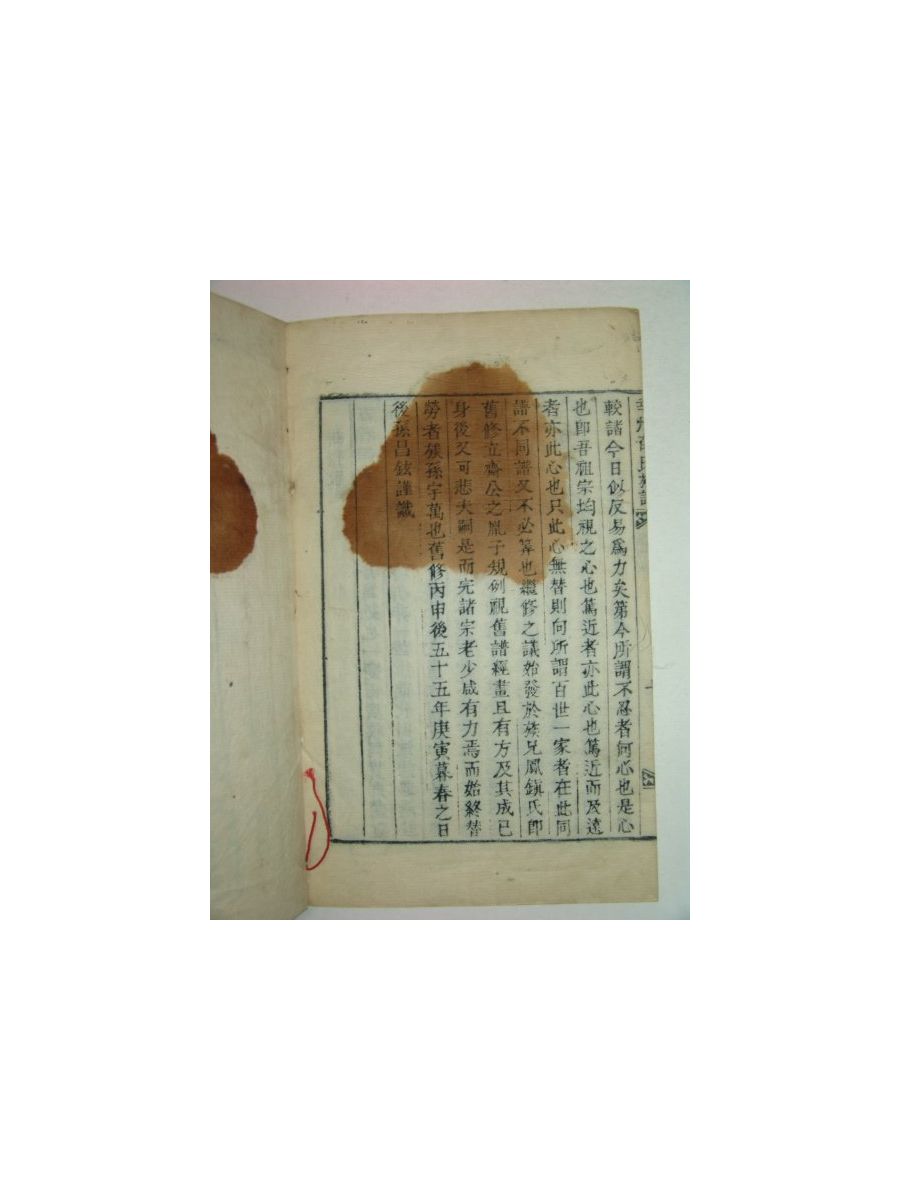 較諸今日似反易爲力矣第今所謂不忍者何心也是心
也卽吾祖宗均視之心也篤近者亦此心也篤近而及遠
者亦此心也只此心無替則向所謂百世一家者在此同
譜不同譜又不必筭也繼修之議始發於族兄鳳鎭氏卽
舊修立齋公之胤子規例視舊譜經畫且有方及其成已
身後又可悲夫嗣是而完諸宗老少咸有力焉而始終替
勞者族孫宇萬也舊修丙申後五十五年庚寅暮春之日
後孫昌鉉謹識